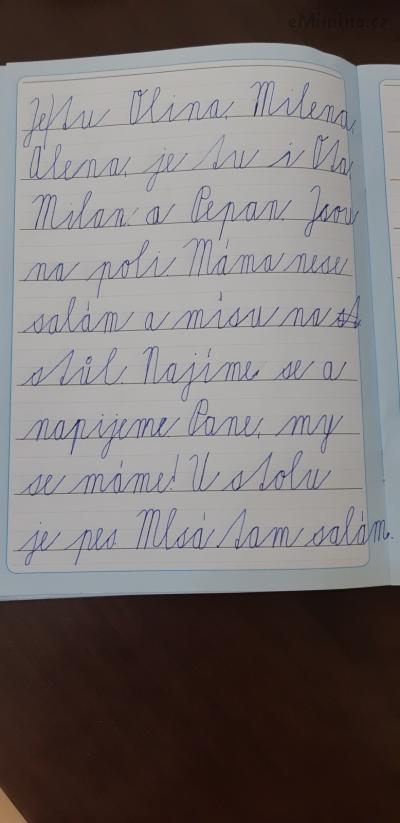 eMimino.cz
Je tu Olina, Milena,
Alena, je tu i Ota,
Milan a Pepan. Jsou
na poli. Máma nese
salám a mísu na st
stůl. Najíme se a
napijeme. Pane, my
se máme! U stolu
je pes Mlsá tam salám.